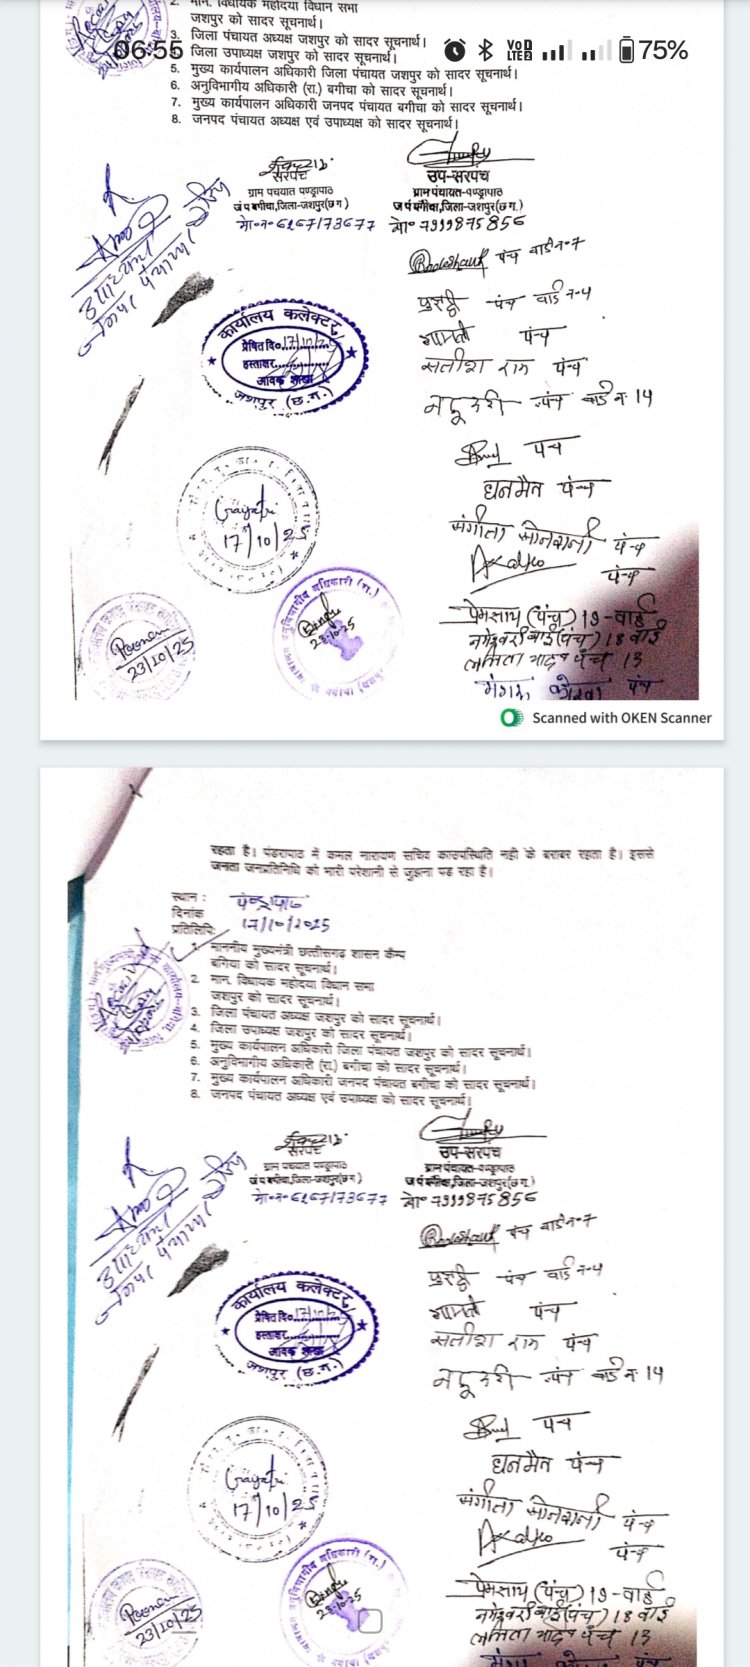 2. मान. विधायक महोदया विधान सभा
जशपुर को सादर सूचनार्थ।
3. जिला पंचायत अध्यक्ष जशपुर को सादर सूचनार्थ।
06:55
75%
4. जिला उपाध्यक्ष जशपुर को सादर सूचनार्थ।
5. मुख्य कार्यपालन अधिकारी जिला पंचायत जशपुर को सादर सूचनार्थ।
6. अनुविभागीय अधिकारी (रा.) बगीचा को सादर सूचनार्थ।
7. मुख्य कार्यपालन अधिकारी जनपद पंचायत बगीचा को सादर सूचनार्थ।
8. जनपद पंचायत अध्यक्ष एवं उपाध्यक्ष को सादर सूचनार्थ।
सरपंच
ग्राम पंचयात पण्ड्रापाठ
जं प बगीचा,जिला-जशपुर(छ ग)
मो०न० 6267173677
उप-सरपंच
ग्राम पंचायत-पण्ड्रापाठ
ज पं बगीचा,जिला-जशपुर(छ ग.)
मो० 7999875856
पंच वार्ड न०7
पंच वार्ड न-4
पंच
सतीश राम पंच
पंच वार्ड न 14
पंच
धनमैत पंच
संगीता सोनवानी पंच
पंच
प्रेमसाय (पंच) 19-वार्ड
नगेश्वरी बाई (पंच) 18 वार्ड
ललिता यादव पंच 13
पंच
कार्यालय कलेक्टर,
प्रेषित दि० 17/10/25
हस्ताक्षर
आवक शाखा
जशपुर (छ.ग.)
Gayatri
17/10/25
Poonam
23/10/25
अनुविभागीय अधिकारी (रा.)
23.10.25
Scanned with OKEN Scanner
रहता है। पंडरापाठ में कमल नारायण सचिव का उपस्थिति नही के बराबर रहता है। इससे
जनता जनप्रतिनिधि को भारी परेशानी से जुझना पड रहा है।
स्थान : पंण्ड्रापाठ
दिनांक 17/10/2025
प्रतिलिपि
1. माननीय मुख्यमंत्री छत्तीसगढ शासन कैम्प
बगिया को सादर सूचनार्थ।
2. मान. विधायक महोदया विधान सभा
जशपुर को सादर सूचनार्थ।
3. जिला पंचायत अध्यक्ष जशपुर को सादर सूचनार्थ।
4. जिला उपाध्यक्ष जशपुर को सादर सूचनार्थ।
5. मुख्य कार्यपालन अधिकारी जिला पंचायत जशपुर को सादर सूचनार्थ।
6. अनुविभागीय अधिकारी (रा.) बगीचा को सादर सूचनार्थ।
7. मुख्य कार्यपालन अधिकारी जनपद पंचायत बगीचा को सादर सूचनार्थ।
8. जनपद पंचायत अध्यक्ष एवं उपाध्यक्ष को सादर सूचनार्थ।
सरपंच
ग्राम पंचयात पण्ड्रापाठ
जं प बगीचा,जिला-जशपुर(छ ग)
मो०न० 6267173677
उप-सरपंच
ग्राम पंचायत-पण्ड्रापाठ
ज पं बगीचा,जिला-जशपुर(छ ग.)
मो० 7999875856
पंच वार्ड न०7
पंच वार्ड न-4
पंच
सतीश राम पंच
पंच वार्ड न 14
पंच
धनमैत पंच
संगीता सोनवानी पंच
पंच
प्रेमसाय (पंच) 19-वार्ड
नगेश्वरी बाई (पंच) 18 वार्ड
ललिता यादव पंच 13
पंच
कार्यालय कलेक्टर,
प्रेषित दि० 17/10/25
हस्ताक्षर
आवक शाखा
जशपुर (छ.ग.)
Gayatri
17/10/25
Poonam
23/10/25
अनुविभागीय अधिकारी (रा.)
23.10.25